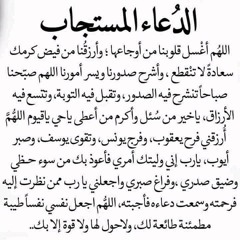 الدُعاء المستجاب
اللهُم أغْسل قلوبنا من أوجاعها ؛ وأرزقُنا من فيض كرمك
سعادةً لا تنْقطع ، وأشرح صدورنا ويسر أمورنا اللهم صبّحنا
صباحاً تنشرح فيه الصدور ، وتقبل فيه التوبة ، وتتسع فيه
الأرزاق، ياخير من سُئل وأكرم من أعطى ياحي ياقيوم اللهمَّ
أرزقني فرح يعقوب ، وفرج يونس ، وتقوى يوسف ، وصبر
أيوب، يارب إني وليتك أمري فأعوذ بك من سوء حظي
وضيق صدري ،وفراغ صبري واجعلني يا رب ممن نظرت إليه
فرحمته وسمعت دعاءه فأجبته، اللهُم اجعل نفسي نفساً طيبة
مطمئنة طائعة لك ، ولاحول لها ولا قوة إلا بك..